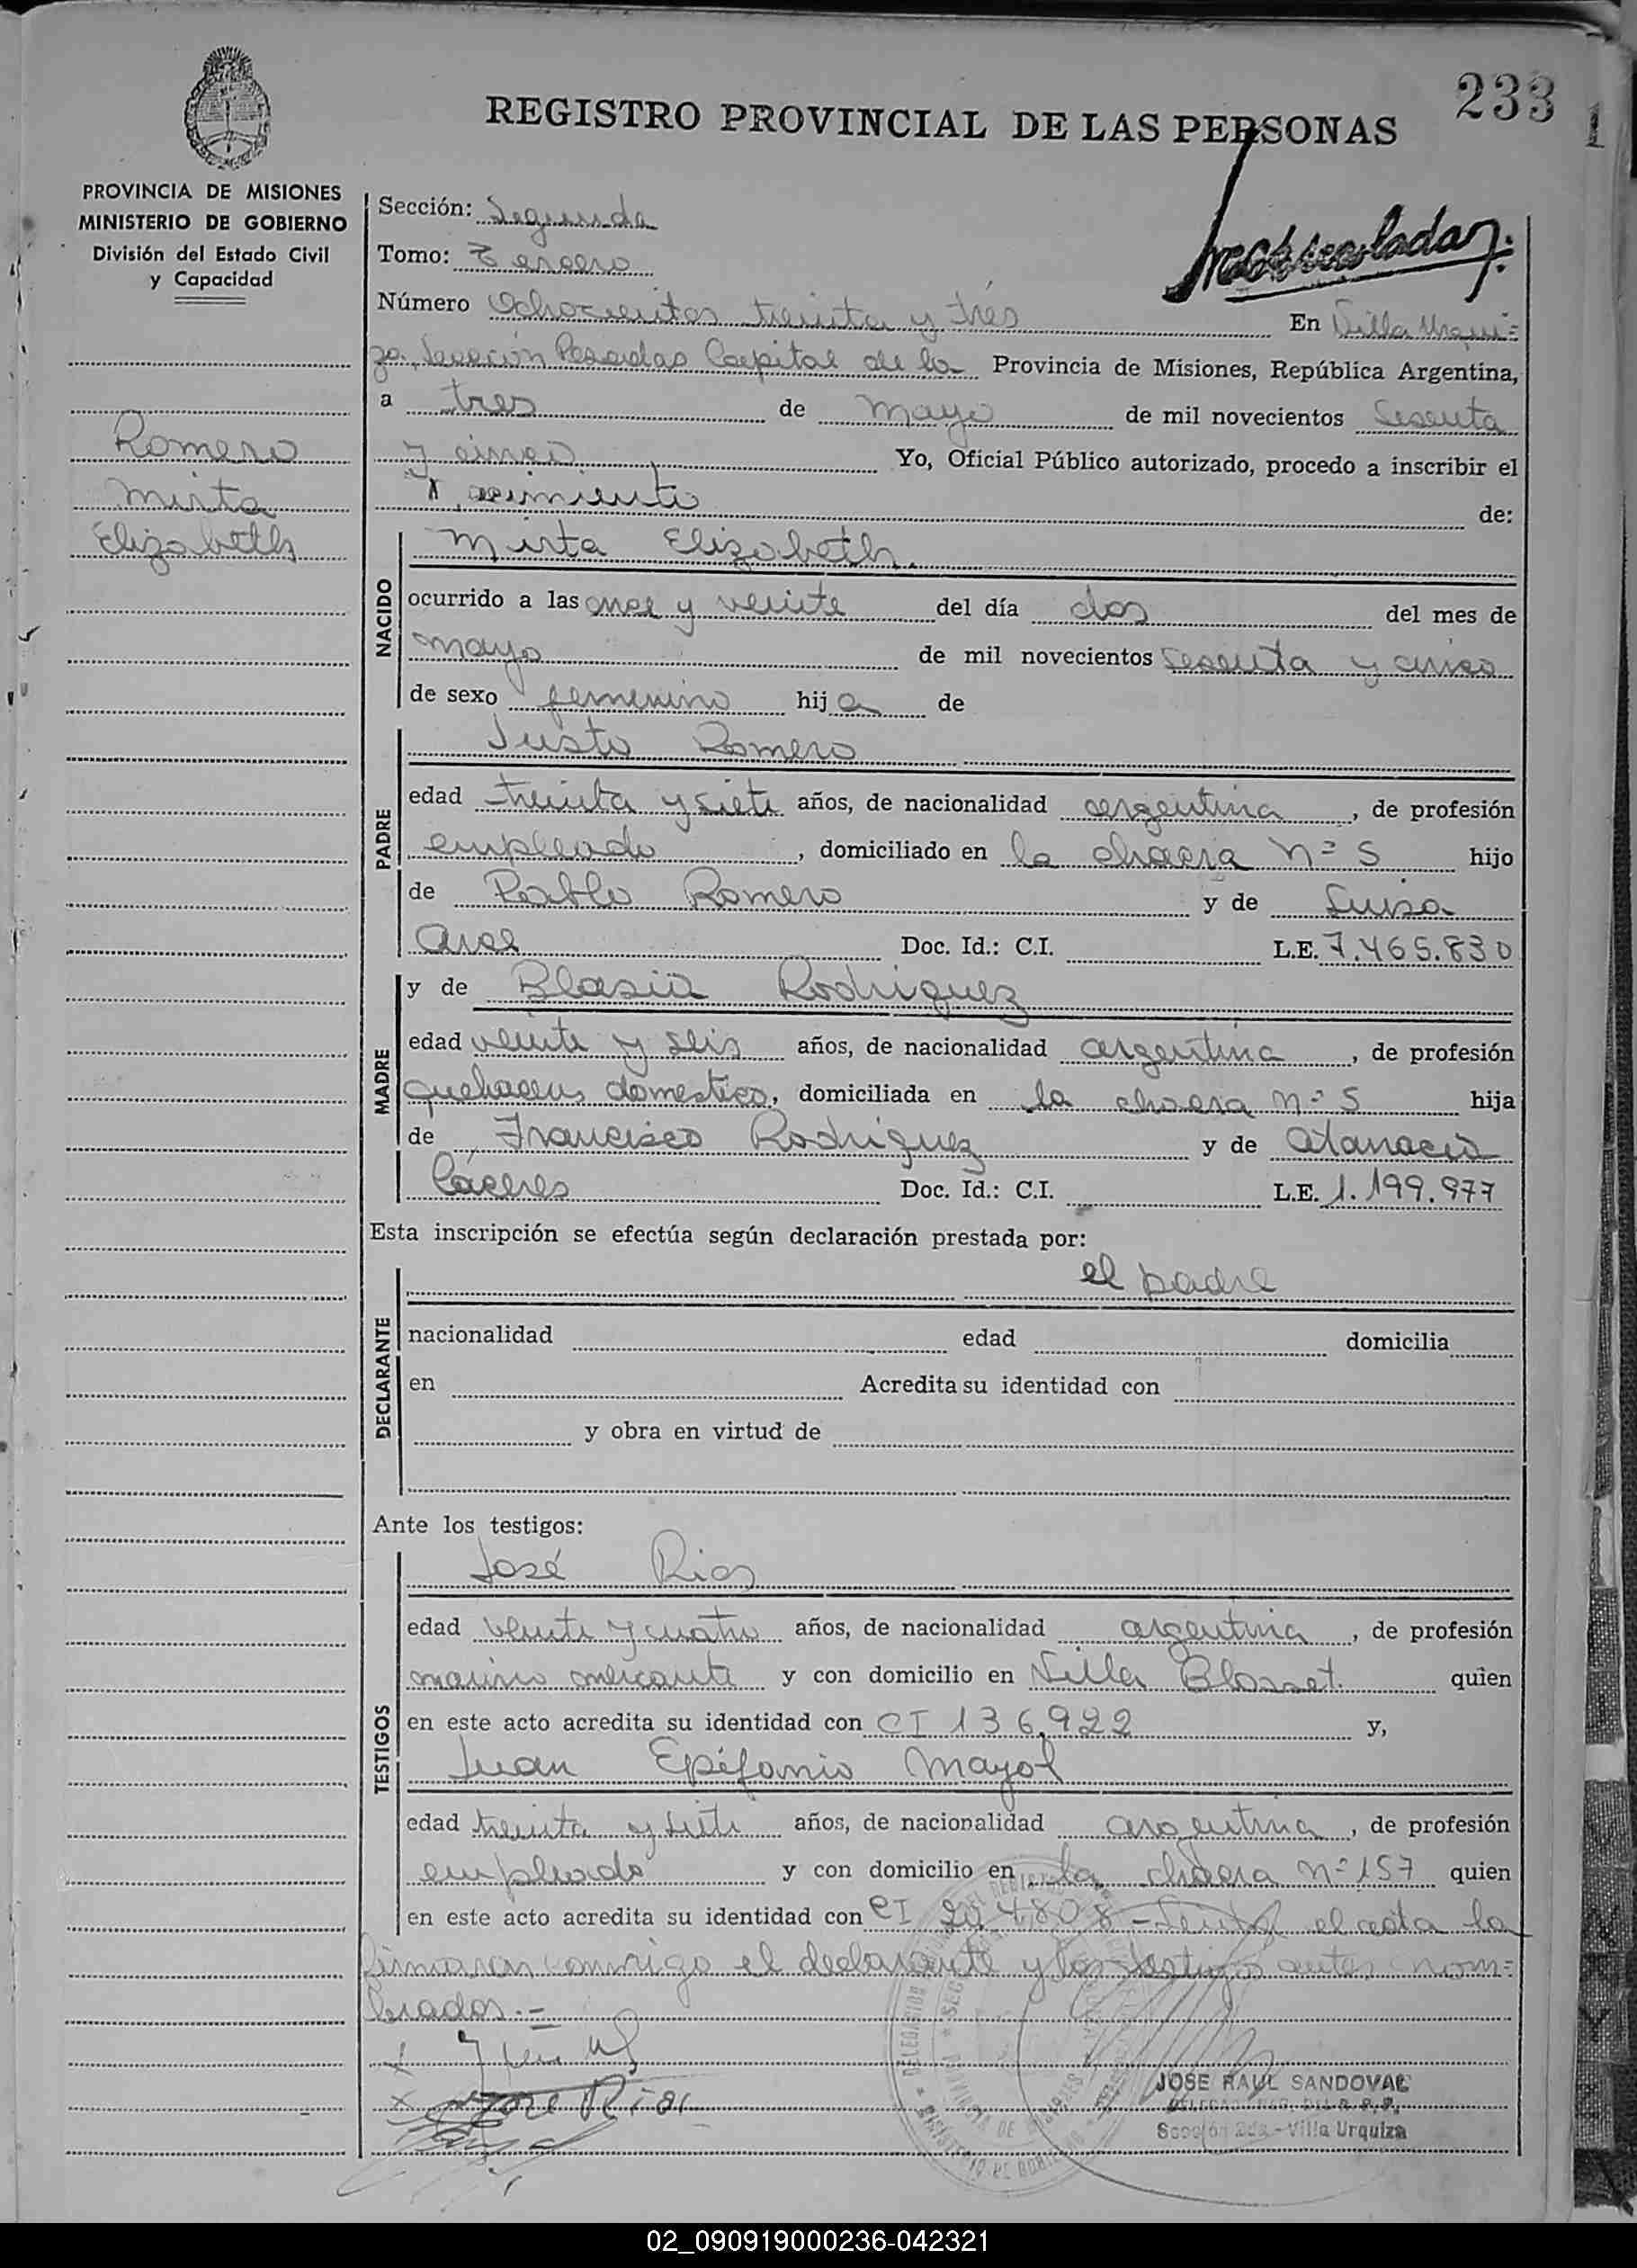 233
1
REGISTRO PROVINCIAL DE LAS PERSONAS
PROVINCIA DE MISIONES
MINISTERIO DE GOBIERNO
División del Estado Civil
y Capacidad
Romero
Mirta
Elizabeth
Sección: Segunda
Tomo: Tercero
Número Ochocientos treinta y tres En Villa Urqui=
za. Sección Posadas Capital de la Provincia de Misiones, República Argentina,
a tres de mayo de mil novecientos sesenta
y cinco Yo, Oficial Público autorizado, procedo a inscribir el
nacimiento de:
NACIDO
Mirta Elizabeth.
ocurrido a las once y veinte del día dos del mes de
mayo de mil novecientos sesenta y cinco
de sexo femenino hija de
PADRE
Justo Romero
edad treinta y siete años, de nacionalidad argentina, de profesión
empleado, domiciliado en la chacra nº 5 hijo
de Pablo Romero y de Luisa
Doc. Id.: C.I. L.E. 7.465.830
MADRE
y de Blasia Rodriguez
edad veinte y seis años, de nacionalidad argentina, de profesión
quehaceres domestico, domiciliada en la chacra nº 5 hija
de Francisco Rodriguez y de Atanacia
Cáceres Doc. Id.: C.I. L.E. 1.199.977
Esta inscripción se efectúa según declaración prestada por:
DECLARANTE
el padre
nacionalidad edad domicilia
en Acredita su identidad con
y obra en virtud de
Ante los testigos:
TESTIGOS
José Rios
edad veinte y cuatro años, de nacionalidad argentina, de profesión
marino mercante y con domicilio en Villa Blosset. quien
en este acto acredita su identidad con CI 136.922 y,
Juan Epifanio Mayol
edad treinta y siete años, de nacionalidad argentina, de profesión
empleado y con domicilio en la chacra nº 157 quien
en este acto acredita su identidad con CI 204808 - el acta la
firmaron conmigo el declarante y los testigos antes nom=
brados.=
Jose Rios
JOSE RAUL SANDOVAL
Sección 2da - Villa Urquiza
02_090919000236-042321